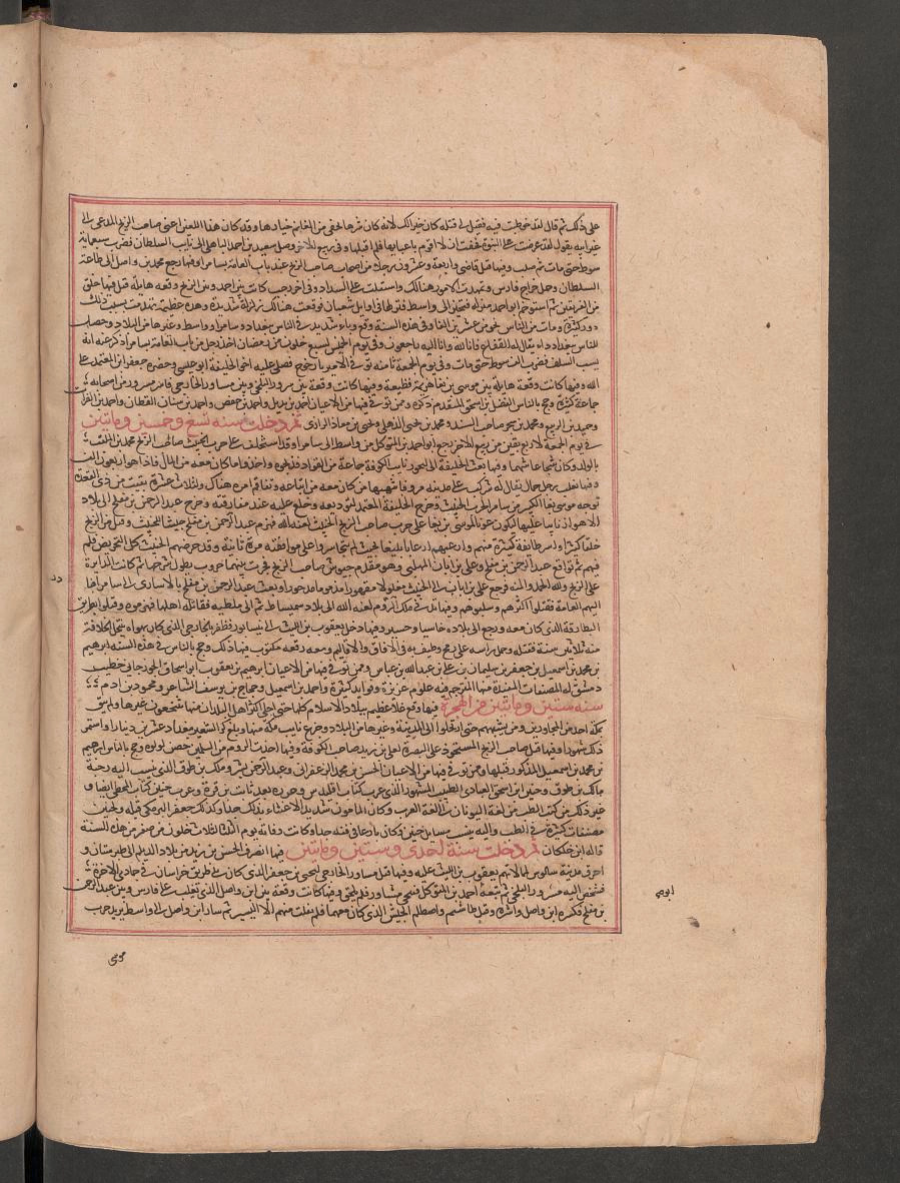 على ذلك ثم قال لقد خوطبت فيه فقيل لي قتله كان خيرا لك لانه كان شرها يخفي من الغنائم خيارها وقد كان هذا اللعين اعني صاحب الزنج المدعي الى
غير ابيه يقول لقد عرضت على النبوة فخفت ان لا اقوم باعبائها فلم اقبلها وفي ربيع الاخر وصل سعيد بن احمد الباهلي الى نايب السلطان فضرب سبعماية
سوط حتى مات ثم صلب وفيها قتل قاضي واربعة وعشرون رجلا من اصحاب صاحب الزنج عند باب العامة بسامرا وفيها رجع محمد بن واصل الى طاعة
السلطان وحمل خراج فارس وتمهدت الامور هنالك واستقلت على السداد وفي اخر رجب كانت بين ابي احمد وبين الزنج وقعة هايلة قتل فيها خلق
من الفريقين ثم استوخم ابو احمد منزله فتحول الى واسط فنزلها في اوايل شعبان فوقعت هنالك زلزلة شديدة وهدة عظيمة تهدمت بسبب ذلك
دور كثيرة ومات من الناس نحو من عشرين الفا وفي هذه السنة وقع وباء شديد في الناس ببغداد وسامرا وواسط وغيرها من البلاد وحصل
للناس ببغداد داء يقال له القفاع فانا لله وانا اليه راجعون وفي يوم الخميس لسبع خلون من رمضان اخذ رجل من باب العامة بسامرا ذكر عنه انه
يسب السلف فضرب الف سوط حتى مات وفي يوم الجمعة ثامنه توفي الامير يارجوخ فصلى عليه اخو الخليفة ابو عيسى وحضره جعفر ابن المعتمد على
الله وفيها كانت وقعة هايلة بين موسى بن بغا هزيمة فظيعة وفيها كانت وقعة بين مسرور البلخي وبين مساور الخارجي فاسر مسرور من اصحابه
جماعة كثيرة وحج بالناس الفضل بن اسحق المتقدم ذكره وممن توفي فيها من الاعيان احمد بن بديل واحمد بن حفص واحمد بن سنان القطان واحمد بن الفرات
وحميد بن الربيع ومحمد بن سنجر صاحب المسند ومحمد بن يحيى الذهلي ويحيى بن معاذ الرازي ثم دخلت سنة تسع وخمسين ومايتين
في يوم الجمعة لاربع بقين من ربيع الاخر رجع ابو احمد بن المتوكل من واسط الى سامرا وقد استخلف على حرب الخبيث صاحب الزنج محمد الملقب
بالمولد وكان شجاعا شهما وفيها بعث الخليفة الى نايب الكوفة جماعة من القواد فذبحوه واخذوا ما كان معه من المال فاذا هو اربعون الف
وفيها تغلب رجل جمال يقال له شركب على مدينة مرو فانتهبها من كان معه من اتباعه وتفاقم امره هناك ولثلاث عشرة بقيت من ذي القعدة
توجه موسى بن بغا الكبير من سامرا لحرب الخبيث وخرج الخليفة المعتمد لتوديعه وخلع عليه عند مفارقته وخرج عبد الرحمن بن مفلح الى بلاد
الاهواز نايبا عليها ليكون عونا لموسى بن بغا على حرب صاحب الزنج الخبيث لعنه الله فهزم عبد الرحمن بن مفلح جيش الخبيث وقتل من الزنج
خلقا كثيرا واسر طائفة كثيرة منهم وارعبهم ارعابا بليغا بحيث لم يتجاسروا على موافقته مرة ثانية وقد حرضهم الخبيث كل التحريض فلم
فيهم ثم تواقع عبد الرحمن بن مفلح وعلي بن ابان المهلبي وهو مقدم جيوش صاحب الزنج فجرت بينهما حروب يطول شرحها ثم كانت الدايرة
على الزنج ولله الحمد والمنة فرجع علي بن ابان الى الخبيث مغلولا مقهورا مذموما مدحورا وبعث عبد الرحمن بن مفلح بالاسارى الى سامرا فبادر
اليهم العامة فقتلوا اكثرهم وسلبوهم وفيها ملك الروم لعنه الله الى بلاد سميساط ثم الى ملطيه فقاتله اهلها فهزموه وقتلوا بطريق
البطارقة الذي كان معه ورجع الى بلاده خاسيا وحسيرا وفيها دخل يعقوب بن الليث الى نيسابور فظفر بالخارجي الذي كان بهراه ينتحل الخلافة
منذ ثلاثين سنة فقتله وحمل راسه على رمح وطيف به في الافاق والاقاليم ومعه رقعة مكتوب فيها ذلك وحج بالناس في هذه السنة ابرهيم
بن محمد بن اسمعيل بن جعفر بن سليمان بن علي بن عبد الله بن عباس وممن توفي فيها من الاعيان ابرهيم بن يعقوب ابو اسحاق الجوزجاني خطيب
دمشق له المصنفات المفيدة منها المترجم فيه علوم غزيرة وفوايد كثيرة واحمد بن اسمعيل وحجاج بن يوسف الشاعر ومحمود بن ادم
سنه ستين ومايتين من الهجرة فيها وقع غلا عظيم ببلاد الاسلام كلها حتى اجلى اكثر اهل البلدان منها شخصون غيرها ولم يبق
بمكة احد من المجاورين ومن يشبههم حتى ارتحلوا الى المدينة وغيرها من البلاد وخرج نايب مكة منها وبلغ كر الشعير ببغداد عشرين دينارا واستمر
ذلك شهورا وفيها قتل صاحب الزنج المستحوذ على البصرة لعلي بن زيد صاحب الكوفة وفيها اخذت الروم من المسلمين حصن لولوه وحج بالناس ابرهيم
بن محمد بن اسمعيل المذكور قبلها وممن توفي فيها من الاعيان الحسن بن محمد الزعفراني وعبد الرحمن بن بشر وملك بن طوق الذي ينسب اليه رحبة
مالك بن طوق وحنين ابن اسحق العبادي الطبيب المشهور الذي عرب كتاب اقليدس وحرره بعد ثابت بن قرة وعرب حنين كتاب المجسطي ايضا و
غير ذلك من كتب الطب من لغة اليونان الى لغة العرب وكان المامون شديد الاعتناء بذلك جدا وكذلك جعفر البرمكي قبله ولحنين
مصنفات كثيرة في الطب واليه ينسب مسايل حنين وكان بارعا في فنه جدا وكانت وفاته يوم الثلثا لثلاث خلون من صفر من هذه السنة
قاله ابن خلكان ثم دخلت سنة احدى وستين ومايتين فيها انصرف الحسن بن زيد من بلاد الديلم الى طبرستان و
احرق مدينة سالوس لممالاتهم يعقوب بن الليث عليه وفيها قتل مساور الخارجي يحيى بن جعفر الذي كان يلي طريق خراسان في جمادي الاخرة
فشخص اليه مسرور البلخي ثم تبعه ابو احمد بن المتوكل فتنحى مساور فلم يلحق وفيها كانت وقعة بين ابن واصل الذي تغلب على فارس وبين عبد الرحمن
بن مفلح فكسره ابن واصل واسره وقتل طاشتم واصطلم الجيش الذي كان معهما فلم يفلت منهم الا اليسير ثم سار ابن واصل الى واسط يريد حرب
موسى